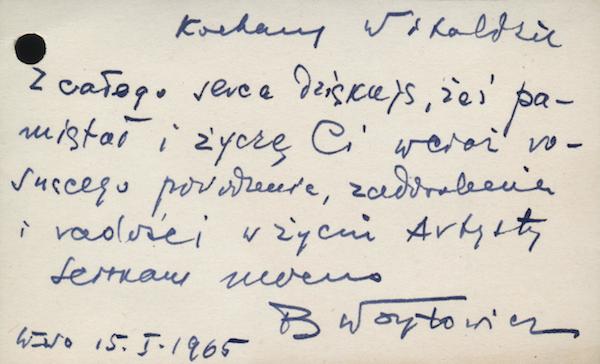 Kochany Witoldzie
Z całego serca dziękuję, żeś pa-
miętał i życzę Ci wciąż ro-
snącego powodzenia, zadowolenia
i radości w życiu Artysty
Ściskam mocno
B Woytowicz
W-wa 15.I.1965